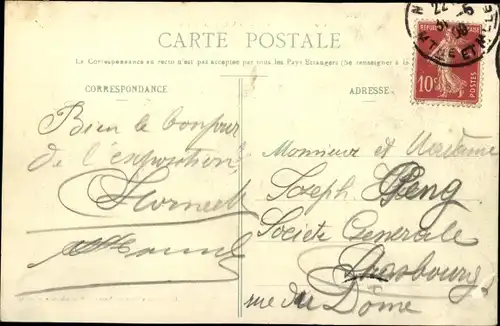 CARTE POSTALE
La Correspondance au recto n'est pas acceptée par tous les Pays Étrangers (Se renseigner à la
CORRESPONDANCE
ADRESSE
Bien le bonjour
de l'exposition
Horneck
Monsieur et Madame
Joseph
Société Generale
Strasbourg
rue du Dôme
REPUBLIQUE FRANÇAISE
10c
POSTES
22
M-THE ET M-LLE